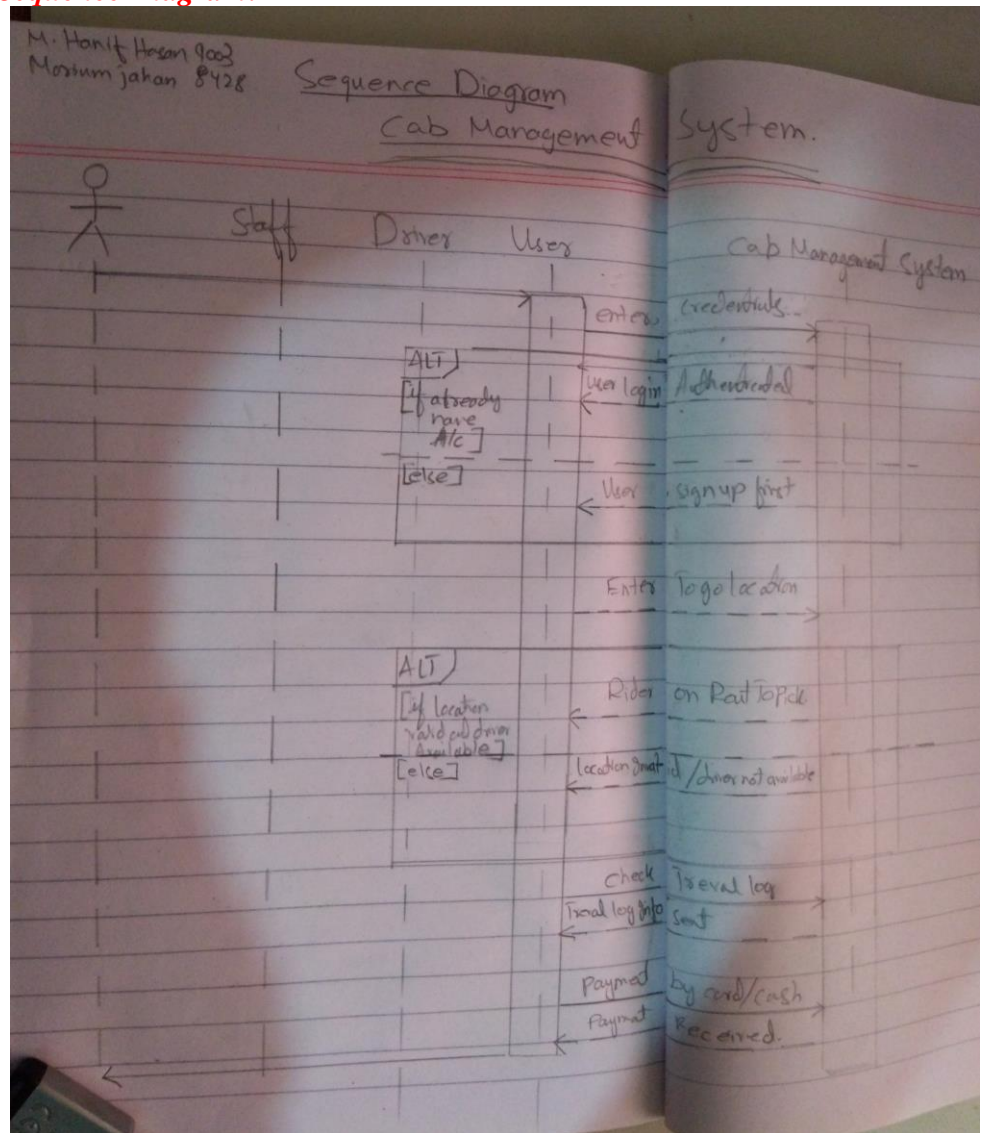 Sequence Diagram:
M. Hanif Hasan 9003
Mariumjahan 8428
Sequence Diagram
Cab Management System.
Staff Driver User Cab Management System
enter credentials..
ALT
User login Authenticated
[if already
have
A/c]
[else]
User signup first
Enter To go location
ALT
[if location
valid and driver
Available]
Rider on Rout To Pick
[else]
location Invalid / driver not available
Check Treval log
Treval log Info sent
Payment by card/cash
Paymnt Received.